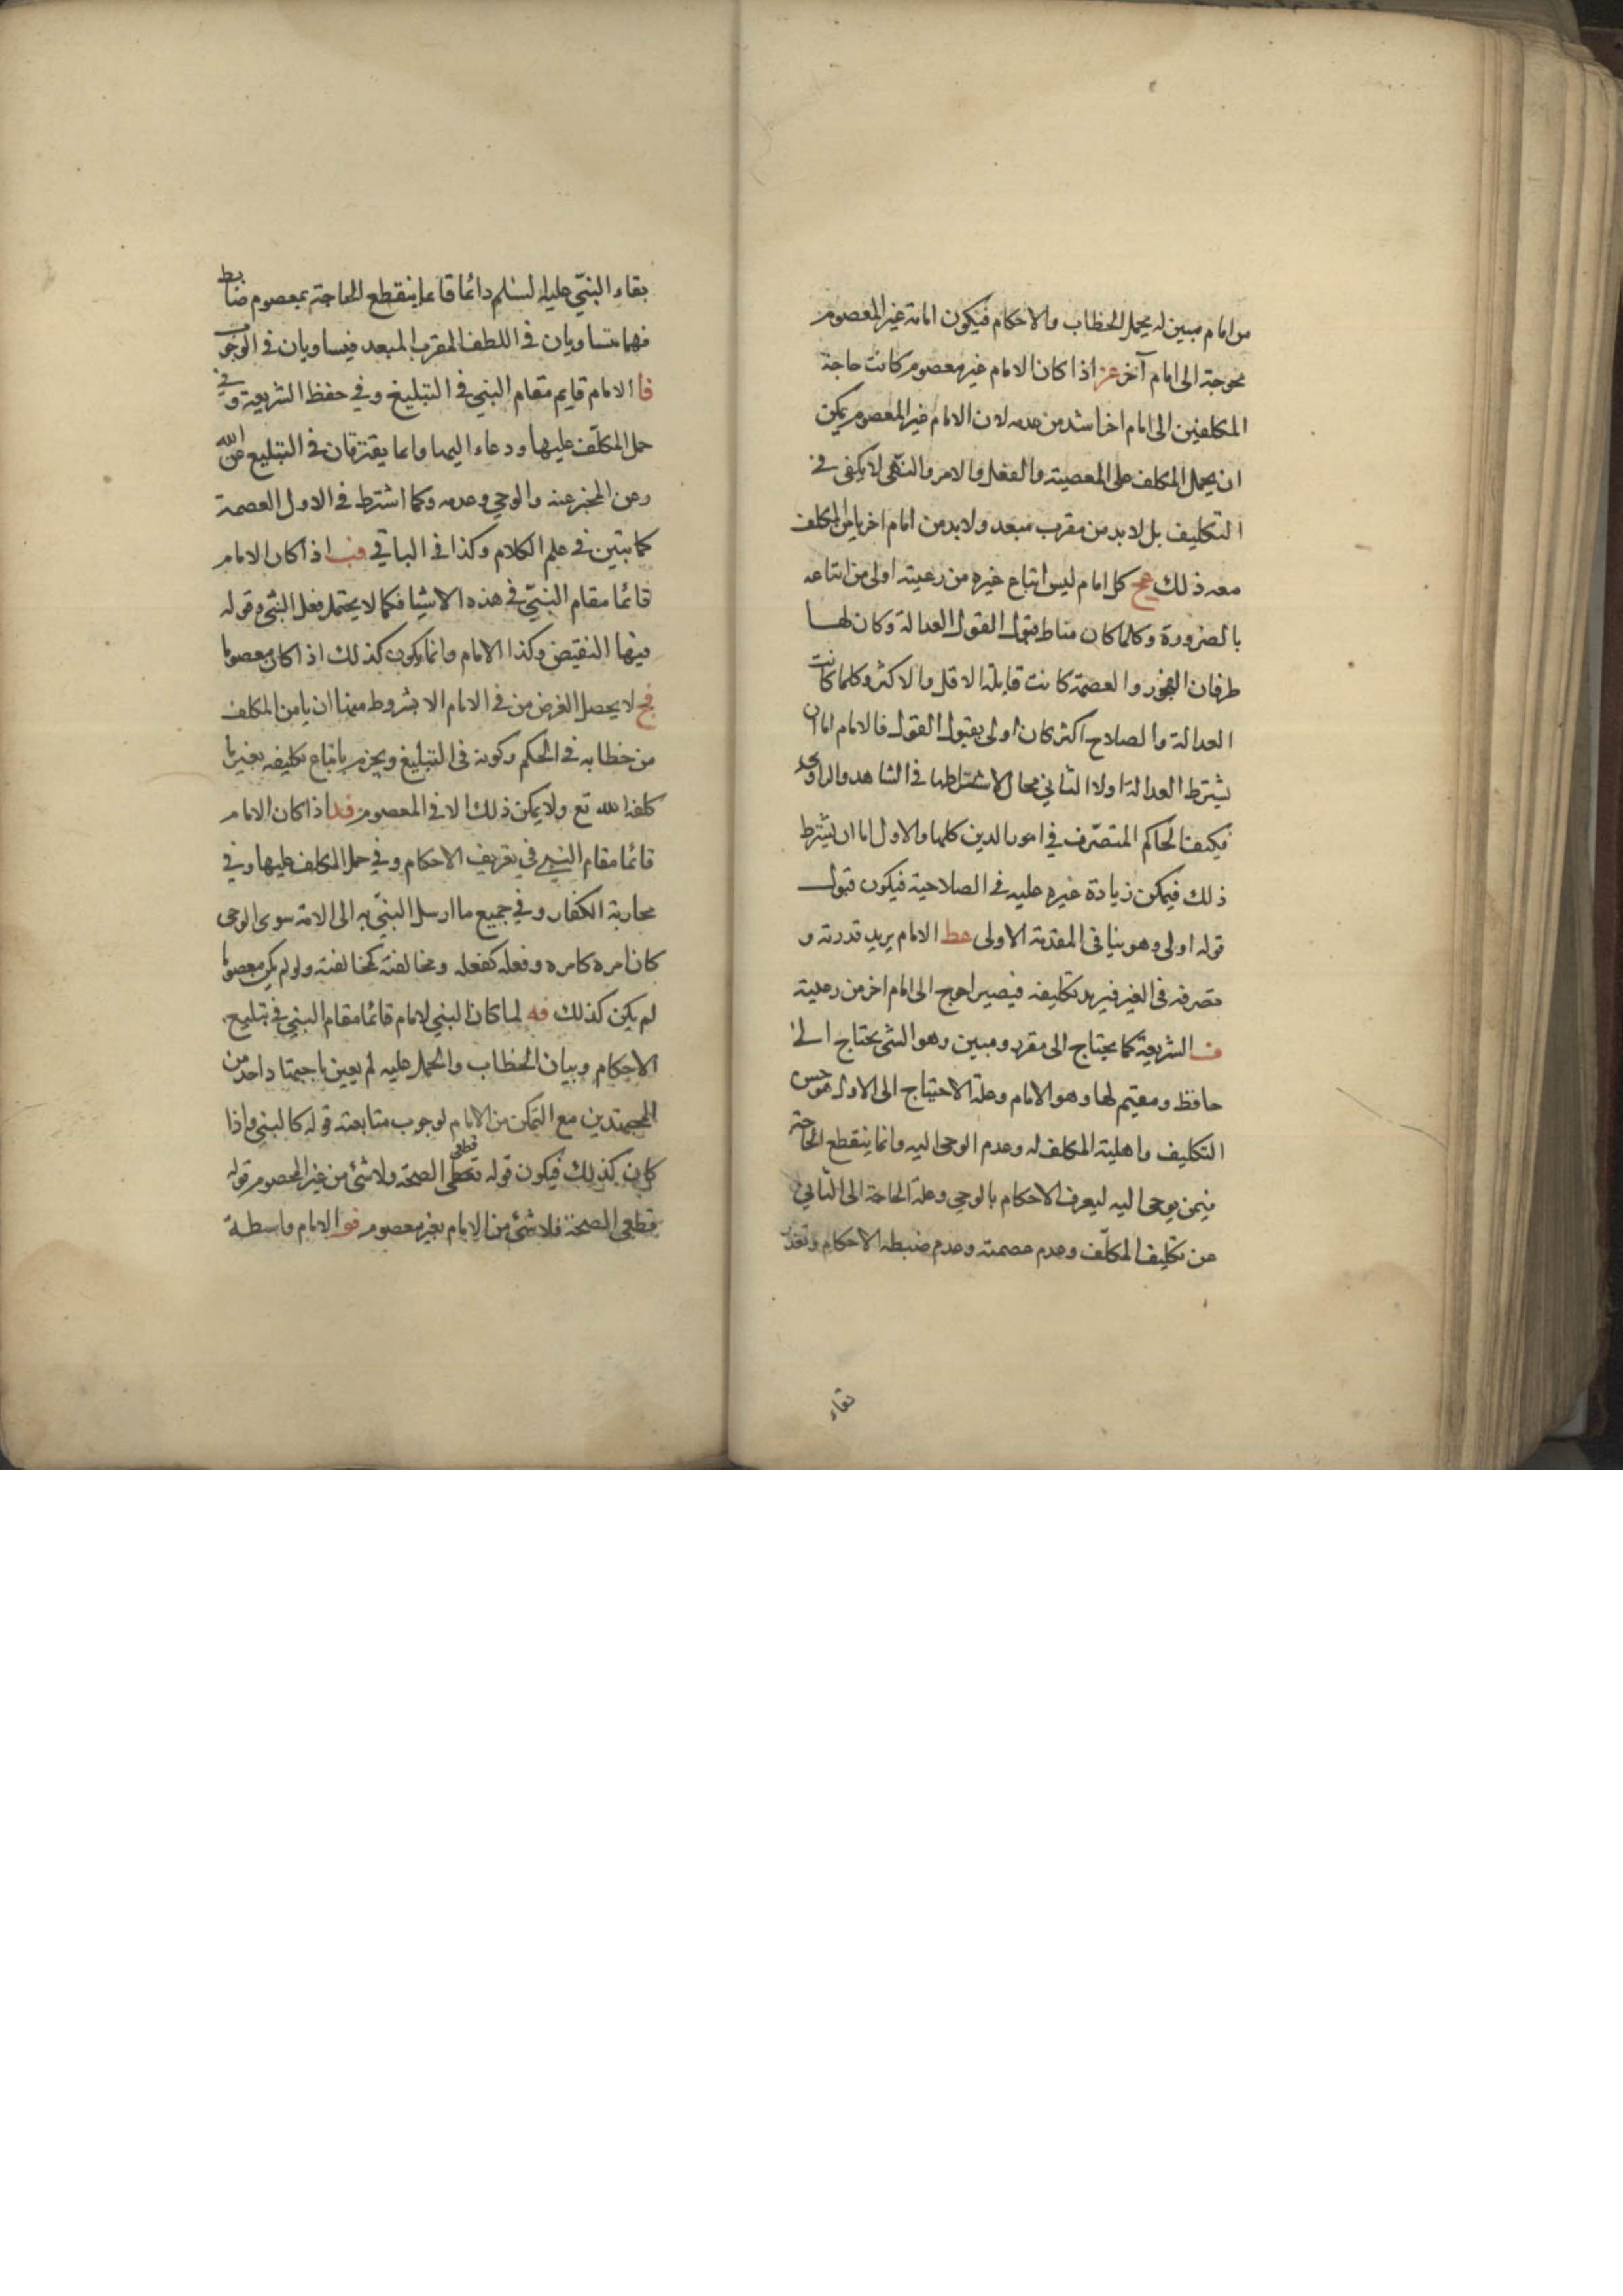 من امام مبين له يحمل الخطاب والاحكام فيكون امامة غير المعصوم
محوجة الى امام آخر عز اذا كان الامام غير معصوم كانت حاجة
المكلفين الى امام اخر اشد من عدمه لان الامام غير المعصوم يمكن
ان يحمل المكلف على المعصية والفعل والامر والنهى لا يكفى فى
التكليف بل لا بد من مقرب مبعد ولا بد من امام اخر يامن المكلف
معه ذلك عح كل امام ليس اتباع غيره من رعيته اولى من اتباعه
بالضرورة وكلما كان مناط قبول القول العدالة وكان لها
طرفان الفجور والعصمة كانت قابلة الاقل والاكثر وكلما كانت
العدالة والصلاح اكثر كان اولى بقبول القول فالامام اما ان
يشترط العدالة اولا الثاني محال لاشتراطها فى الشاهد والراوى
فكيف الحاكم المتصرف في امور الدين كلها والاول اما ان يشترط
ذلك فيمكن زيادة غيره عليه فى الصلاحية فيكون قبول
قوله اولى وهو ينافى المقدمة الاولى عط الامام يريد قدرته و
تصرفه فى الغير فيريد تكليفه فيصير احوج الى امام اخر من رعيته
ف الشريعة كما يحتاج الى مقرر ومبين وهو الشى يحتاج الى
حافظ ومقيم لها وهو الامام وعلة الاحتياج الى الاول هو حسن
التكليف واهلية المكلف له وعدم الوحى اليه وانما ينقطع الحاجة
فيمن يوحى اليه ليعرف الاحكام بالوحي وعلة الحاجة الى الثاني
عن تكليف المكلف وعدم عصمته وعدم ضبطه الاحكام وتعذر
بقاء
بقاء النبىّ عليه السلم دائما قاعا ينقطع الحاجة بمعصوم ضابط
فهما متساويان فى اللطف المقرب المبعد فيساويان فى الوجوب
فا الامام قايم مقام النبي فى التبليغ وفي حفظ الشريعة وفي
حمل المكلّف عليها ودعاء اليها وانما يفترقان فى التبليغ عن الله
وعن المخبر عنه والوحي وعدمه وكما اشترط فى الاول العصمة
كما تبين في علم الكلام وكذا فى الباقي فب اذا كان الامام
قائما مقام النبىّ في هذه الاشيا فكما لا يحتمل فعل النبى وقوله
فيها النقيض وكذا الامام وانما يكون كذلك اذا كان معصوما
فج لا يحصل الغرض من فى الامام الا بشروط منها ان يامن المكلف
من خطابه فى الحكم وكونه فى التبليغ ويجزم باتباع تكليفه بغير ما
كلفه الله تع ولا يمكن ذلك الا فى المعصوم فد اذا كان الامام
قائما مقام النبي في تعريف الاحكام وفي حمل المكلف عليها وفي
محاربة الكفار وفي جميع ما ارسل النبىّ به الى الامة سوى الوحى
كان امره كامره وفعله كفعله ومخالفته كمخالفته ولو لم يكن معصوما
لم يكن كذلك فه لما كان النبي لامام قائما مقام النبي في تبليع
الاحكام وبيان الخطاب والحمل عليه لم يعين باجتهاد احد من
المجتهدين مع التمكن من الامام لوجوب متابعة قوله كالنبي واذا
كان كذلك فيكون قوله قطعى الصحة ولا شئ من غير المعصوم قوله
قطعى الصحة فلا شئ من الامام بغير معصوم فو الامام واسطة